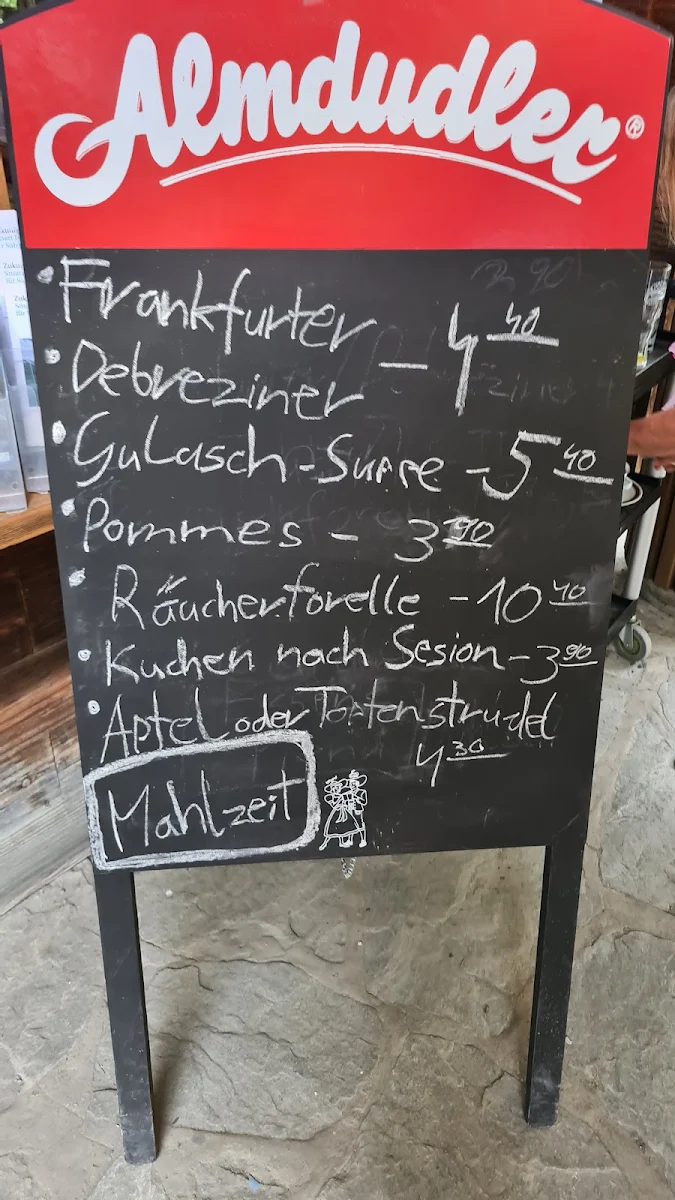 Almdudler®
• Frankfurter
• Debreziner — 4 40
• Gulasch-Suppe - 5 40
• Pommes - 3 90
• Räucherforelle - 10 40
• Kuchen nach Sesion - 3 90
• Apfel oder Topfenstrudel
4 30
Mahlzeit